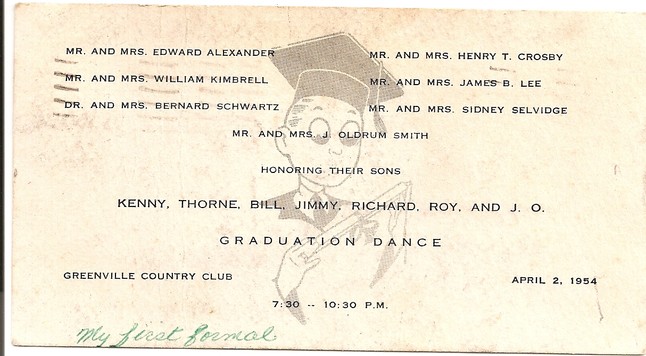 MR. AND MRS. EDWARD ALEXANDER MR. AND MRS. HENRY T. CROSBY
MR. AND MRS. WILLIAM KIMBRELL MR. AND MRS. JAMES B. LEE
DR. AND MRS. BERNARD SCHWARTZ MR. AND MRS. SIDNEY SELVIDGE
MR. AND MRS. J. OLDRUM SMITH
HONORING THEIR SONS
KENNY, THORNE, BILL, JIMMY, RICHARD, ROY, AND J. O.
GRADUATION DANCE
GREENVILLE COUNTRY CLUB APRIL 2, 1954
7:30 -- 10:30 P.M.
My first formal